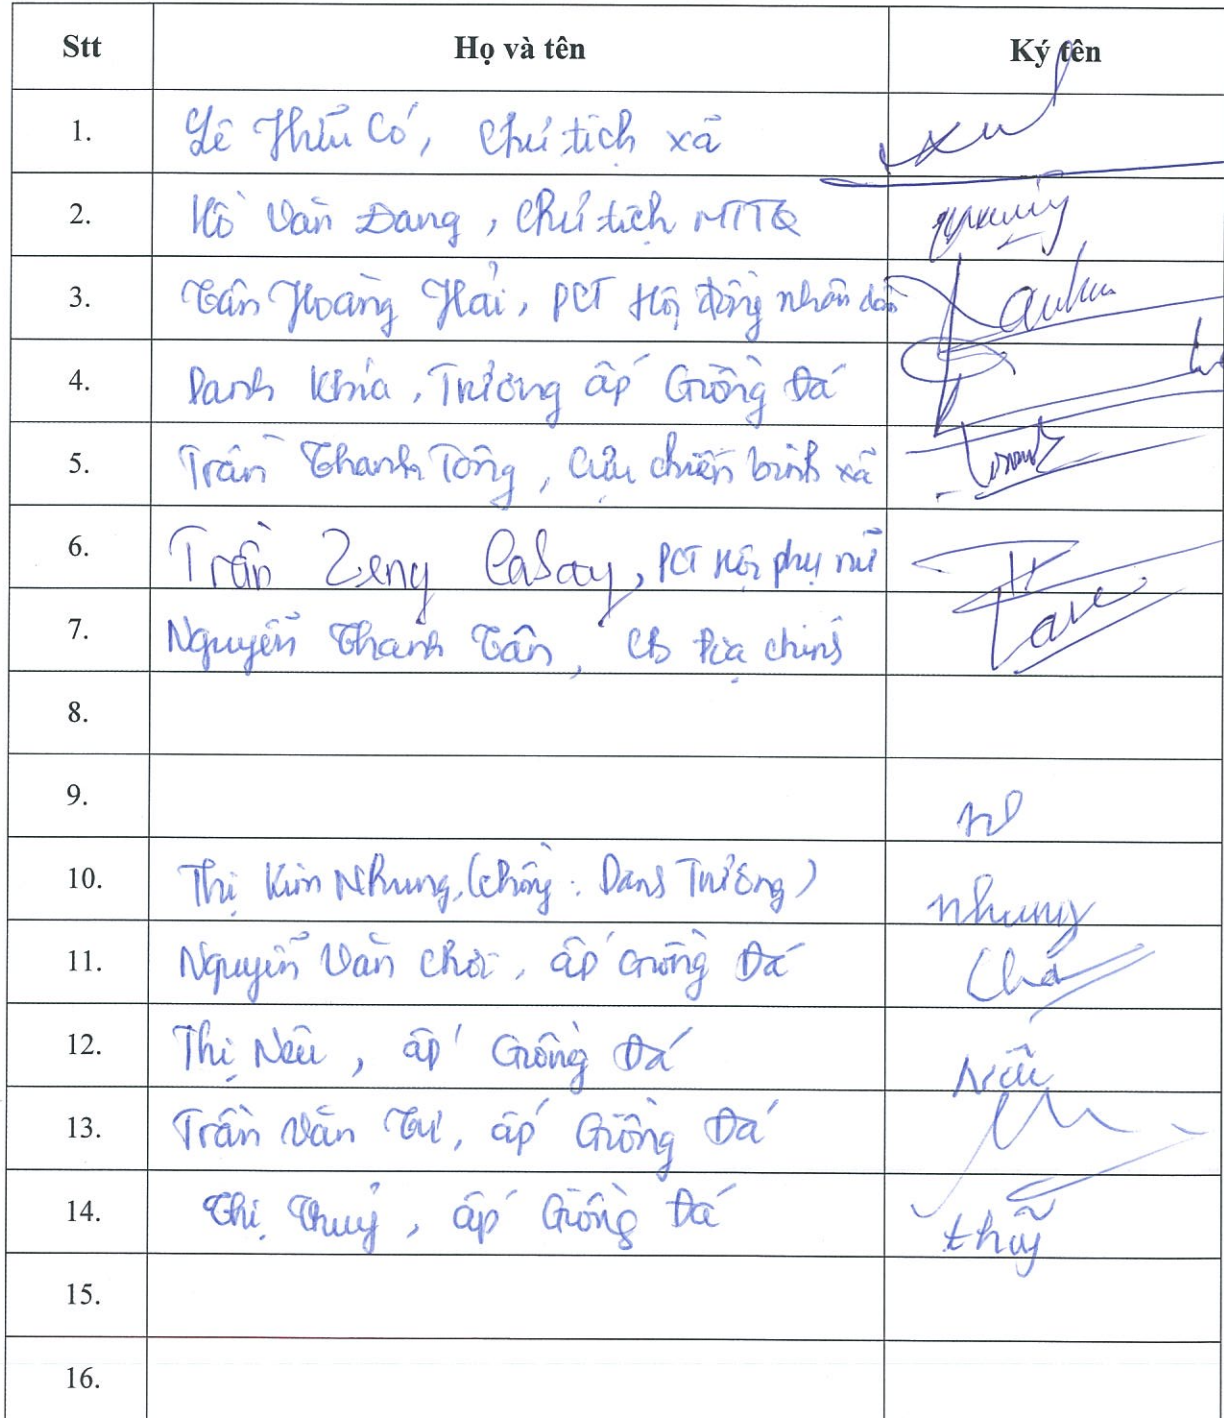 Stt Họ và tên Ký tên
1. Lê Hữu Có, Chủ tịch xã
2. Hồ Văn Đang, Chủ tịch MTTQ
3. Tân Hoàng Hải, PCT Hội đồng nhân dân
4. Danh Khia, Trưởng ấp Giồng Đá
5. Trần Thanh Tòng, Cựu chiến binh xã
6. Trần Zeny LaSay, PCT Hội phụ nữ
7. Nguyễn Thanh Tân, CB Địa chính
8.
9.
10. Thị Kim Nhung, (chồng: Danh Trường) nhung
11. Nguyễn Văn Chơi, ấp Giồng Đá
12. Thị Nêu, ấp Giồng Đá
13. Trần Văn Tư, ấp Giồng Đá
14. Thị Thuỷ, ấp Giồng Đá thũy
15.
16.